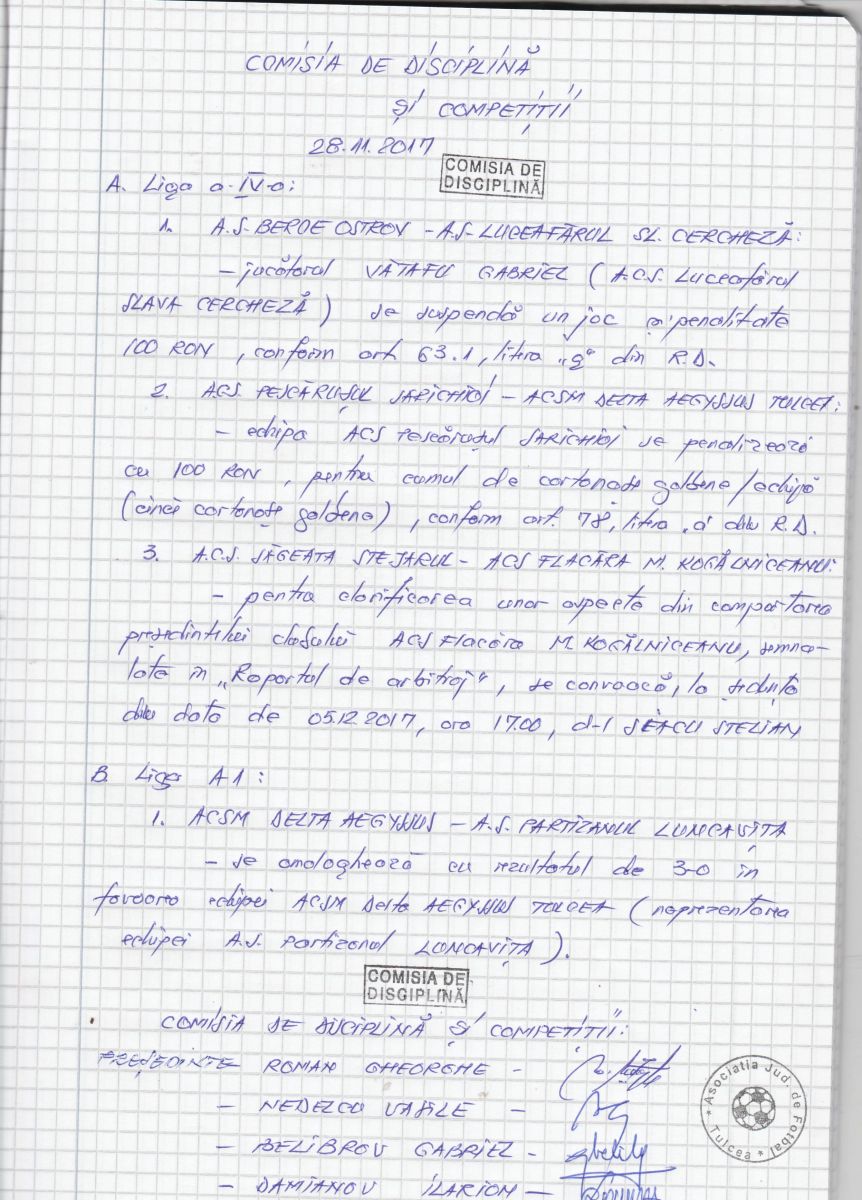 COMISIA DE DISCIPLINĂ
ȘI COMPETIȚII
28.11.2017
COMISIA DE
DISCIPLINĂ
A. Liga a-IV-a:
1. A.S. BEROE OSTROV - A.S. LUCEAFĂRUL SL. CERCHEZĂ:
- jucătorul VĂTAFU GABRIEL (A.C.S. Luceafărul
SLAVA CERCHEZĂ) se suspendă un joc și penalitate
100 RON, conform art. 63.1, litera "g" din R.D.
2. ACS. PESCĂRUȘUL SARICHIOI - ACSM DELTA AEGYSSUS TULCEA:
- echipa ACS Pescărușul SARICHIOI se penalizează
cu 100 RON, pentru cumul de cartonașe galbene/echipă
(cinci cartonașe galbene), conform art. 78, litera "a" din R.D.
3. A.C.S. SĂGEATA STEJARUL - ACS FLACĂRA M. KOGĂLNICEANU:
- pentru clarificarea unor aspecte din comportarea
președintelui clubului ACS Flacăra M. KOGĂLNICEANU, semna-
late în "Raportul de arbitraj", se convoacă, la ședința
din data de 05.12.2017, ora 17.00, d-l SEACU STELIAN
B. Liga A1:
1. ACSM DELTA AEGYSSUS - A.S. PARTIZANUL LUNCAVIȚA
- se omologhează cu rezultatul de 3-0 în
favoarea echipei ACSM Delta AEGYSSUS TULCEA (neprezentarea
echipei A.S. Partizanul LUNCAVIȚA).
COMISIA DE
DISCIPLINĂ
COMISIA DE DISCIPLINĂ ȘI COMPETIȚII:
PREȘEDINTE ROMAN GHEORGHE -
- NEDELCU VASILE -
- BELIBROV GABRIEL -
- DAMIANOV ILARION -
* Asociatia Jud. de Fotbal * Tulcea